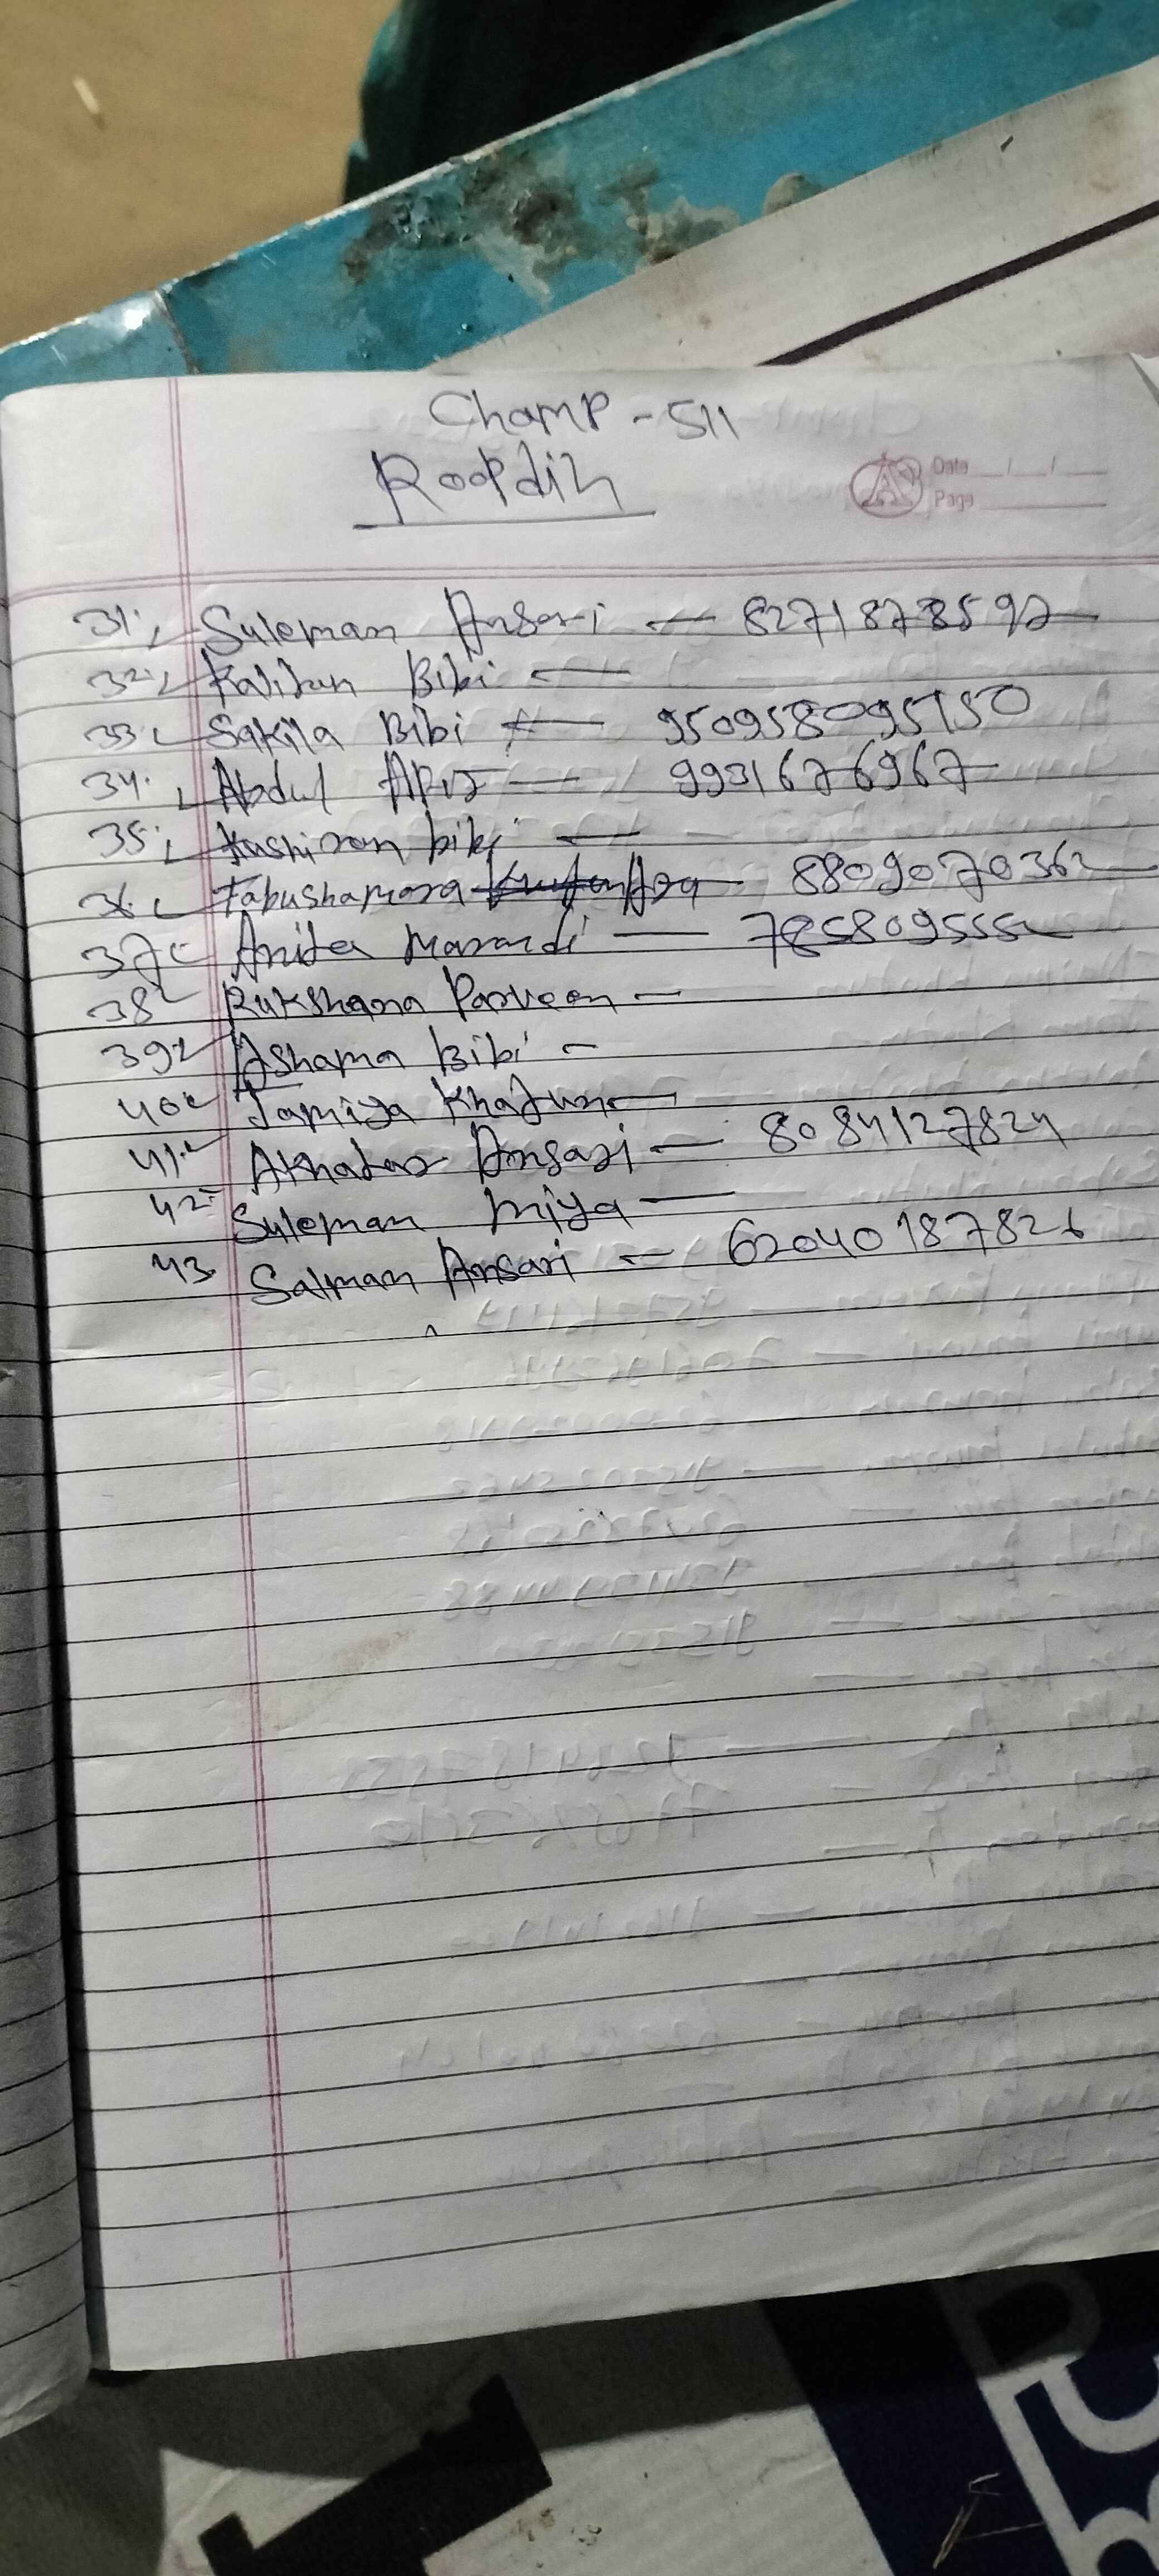 Champ - 511
Roopdih
Date / /
Page
31. Suleman Ansari — 8271878592
32. Kalitun Bibi —
33. Sakila Bibi — 950958095150
34. Abdul — 9931676967
35. bibi —
36. Ara — 8809070362
37. Anita Marandi — 785809555
38 Rukshana Parveen —
39 Ashama Bibi —
40 Jamiya Khatun —
41. Akhatar Ansari — 8084127824
42. Suleman miya —
43. Salman Ansari — 62040187826